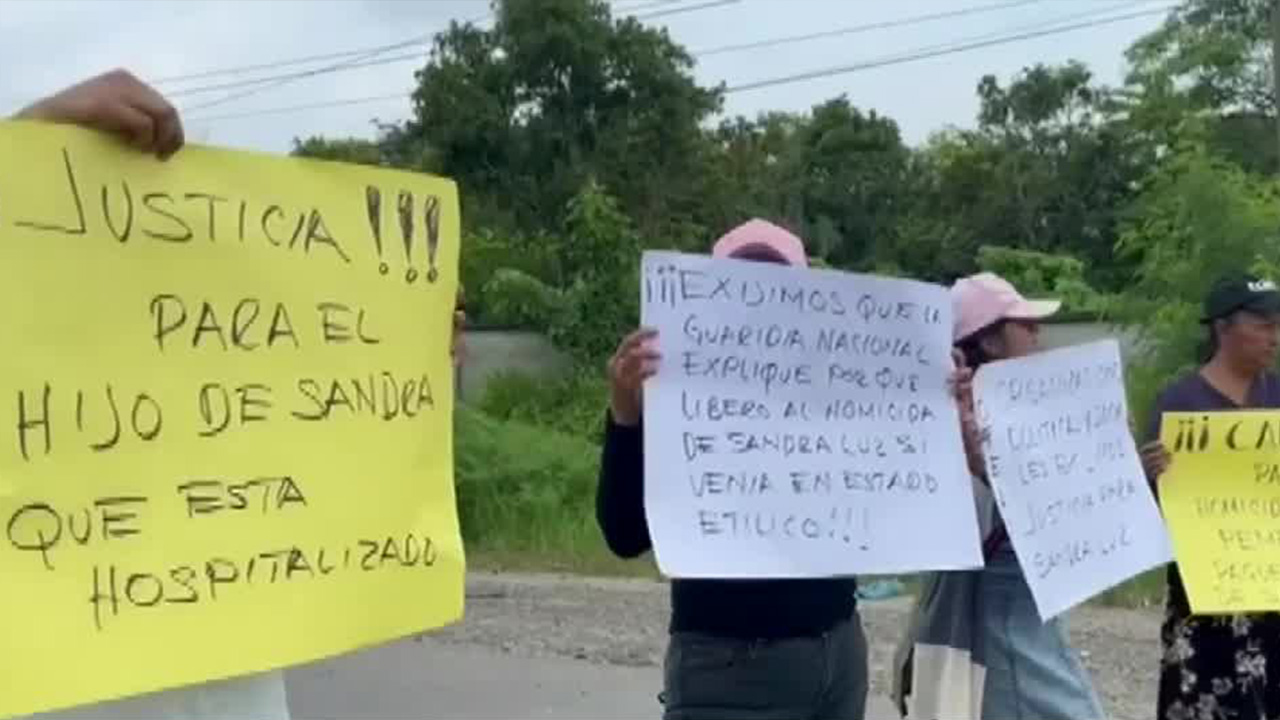 JUSTICIA!!!
PARA EL
HIJO DE SANDRA
QUE ESTA
HOSPITALIZADO
¡¡¡EXIJIMOS QUE LA
GUARDIA NACIONAL
EXPLIQUE POR QUE
LIBERO AL HOMICIDA
DE SANDRA LUZ SI
VENIA EN ESTADO
ETILICO!!!
JUSTICIA PARA
SANDRA LUZ
¡¡¡ CA
PA
HOMICID
PEN
PAGUE